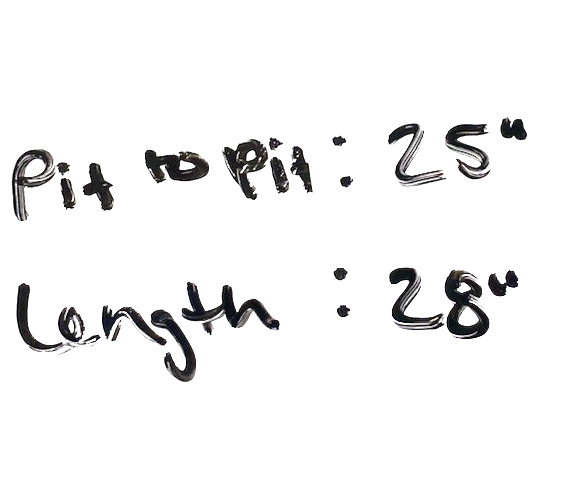 Pit to Pit : 25"
Length : 28"